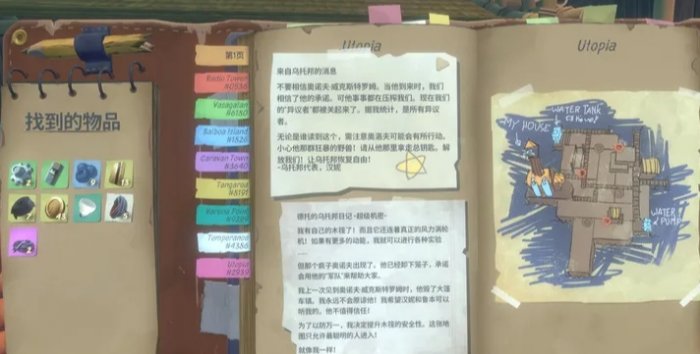 找到的物品
第1页
Radio Tower
#0536
Vasagatan
#6160
Balboa Island
#1526
Caravan Town
#3640
Tangaroa
#5191
Varuna Point
Temperance
#4386
Utopia
#2939
Utopia
来自乌托邦的消息
不要相信奥诺夫·威克斯特罗姆。当他到来时，我们
相信了他的承诺。可他事事都在压榨我们。现在我们
的“异议者”都被关起来了。据我统计，是所有异议
者。
无论是谁读到这个，需注意奥洛夫可能会有所行动。
小心他那群狂暴的野兽！请从他那里拿走总钥匙。解
放我们！让乌托邦恢复自由！
-乌托邦代表，汉妮
德托的乌托邦日记-超级机密-
我有自己的木筏了！而且它还连着真正的风力涡轮
机！如果有更多的动能，我就可以进行各种实验
但那个疯子奥诺夫出现了。他已经卸下笼子，承诺
会用他的“军队”来帮助大家。
我上一次见到奥诺夫·威克斯特罗姆时，他毁了大篷
车镇。我永远不会原谅他！我希望汉妮和鲁本可以
听我的。他不值得信任！
为了以防万一，我决定提升木筏的安全性。这张地
图只允许最聪明的人进入！
就像我一样！
Utopia
WATER TANK
MY HOUSE
WATER
PUMP